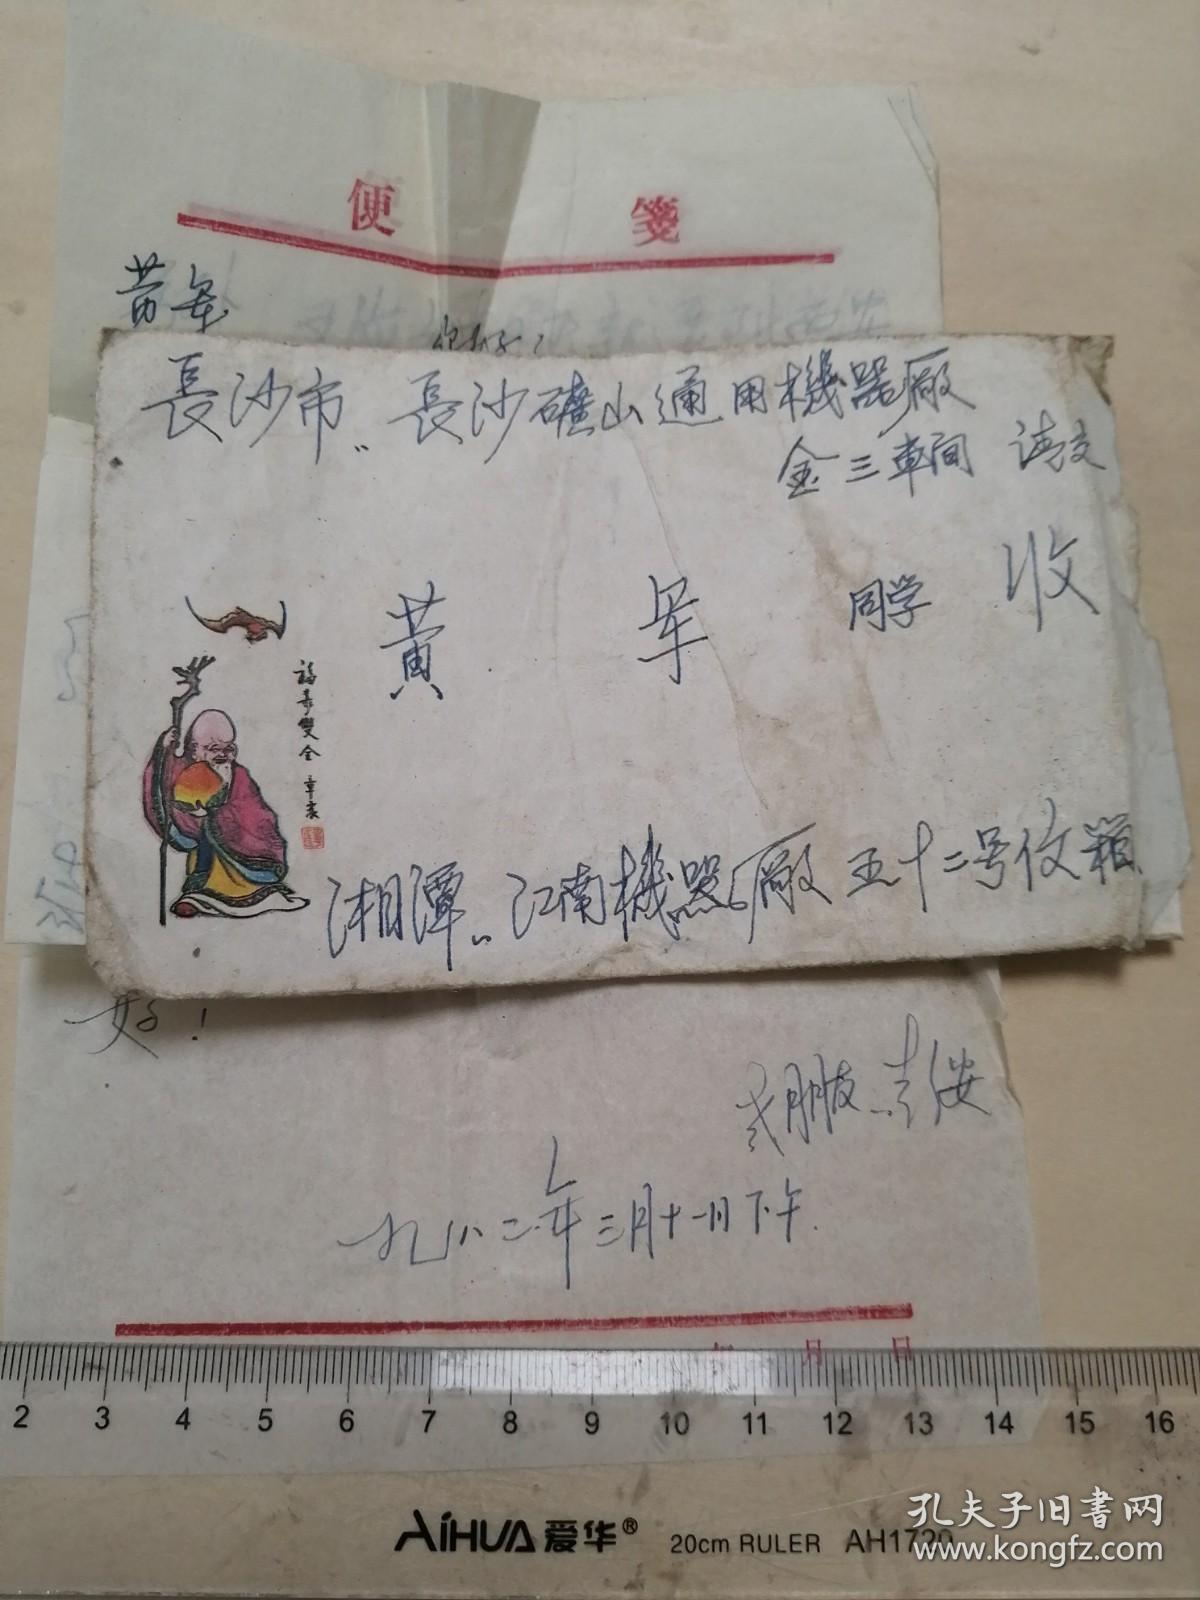 便 笺
黄军
你好!
長沙市、長沙礦山通用機器廠
金三車间 请交
黄 军 同学 收
福寿雙全
湘潭、江南機器廠五十二号信箱
好!
朋友
一九八二年三月十一日下午.
月 日
2 3 4 5 6 7 8 9 10 11 12 13 14 15 16
AIHUA 爱华® 20cm RULER AH1720
孔夫子旧书网
www.kongfz.com